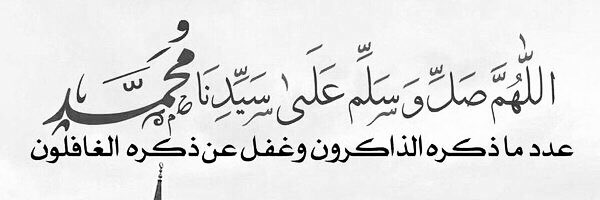 اللَّهُمَّ صَلِّ وَسَلِّم عَلَىٰ سَيِّدِنَا مُحَمَّد
عدد ما ذكره الذاكرون وغفل عن ذكره الغافلون